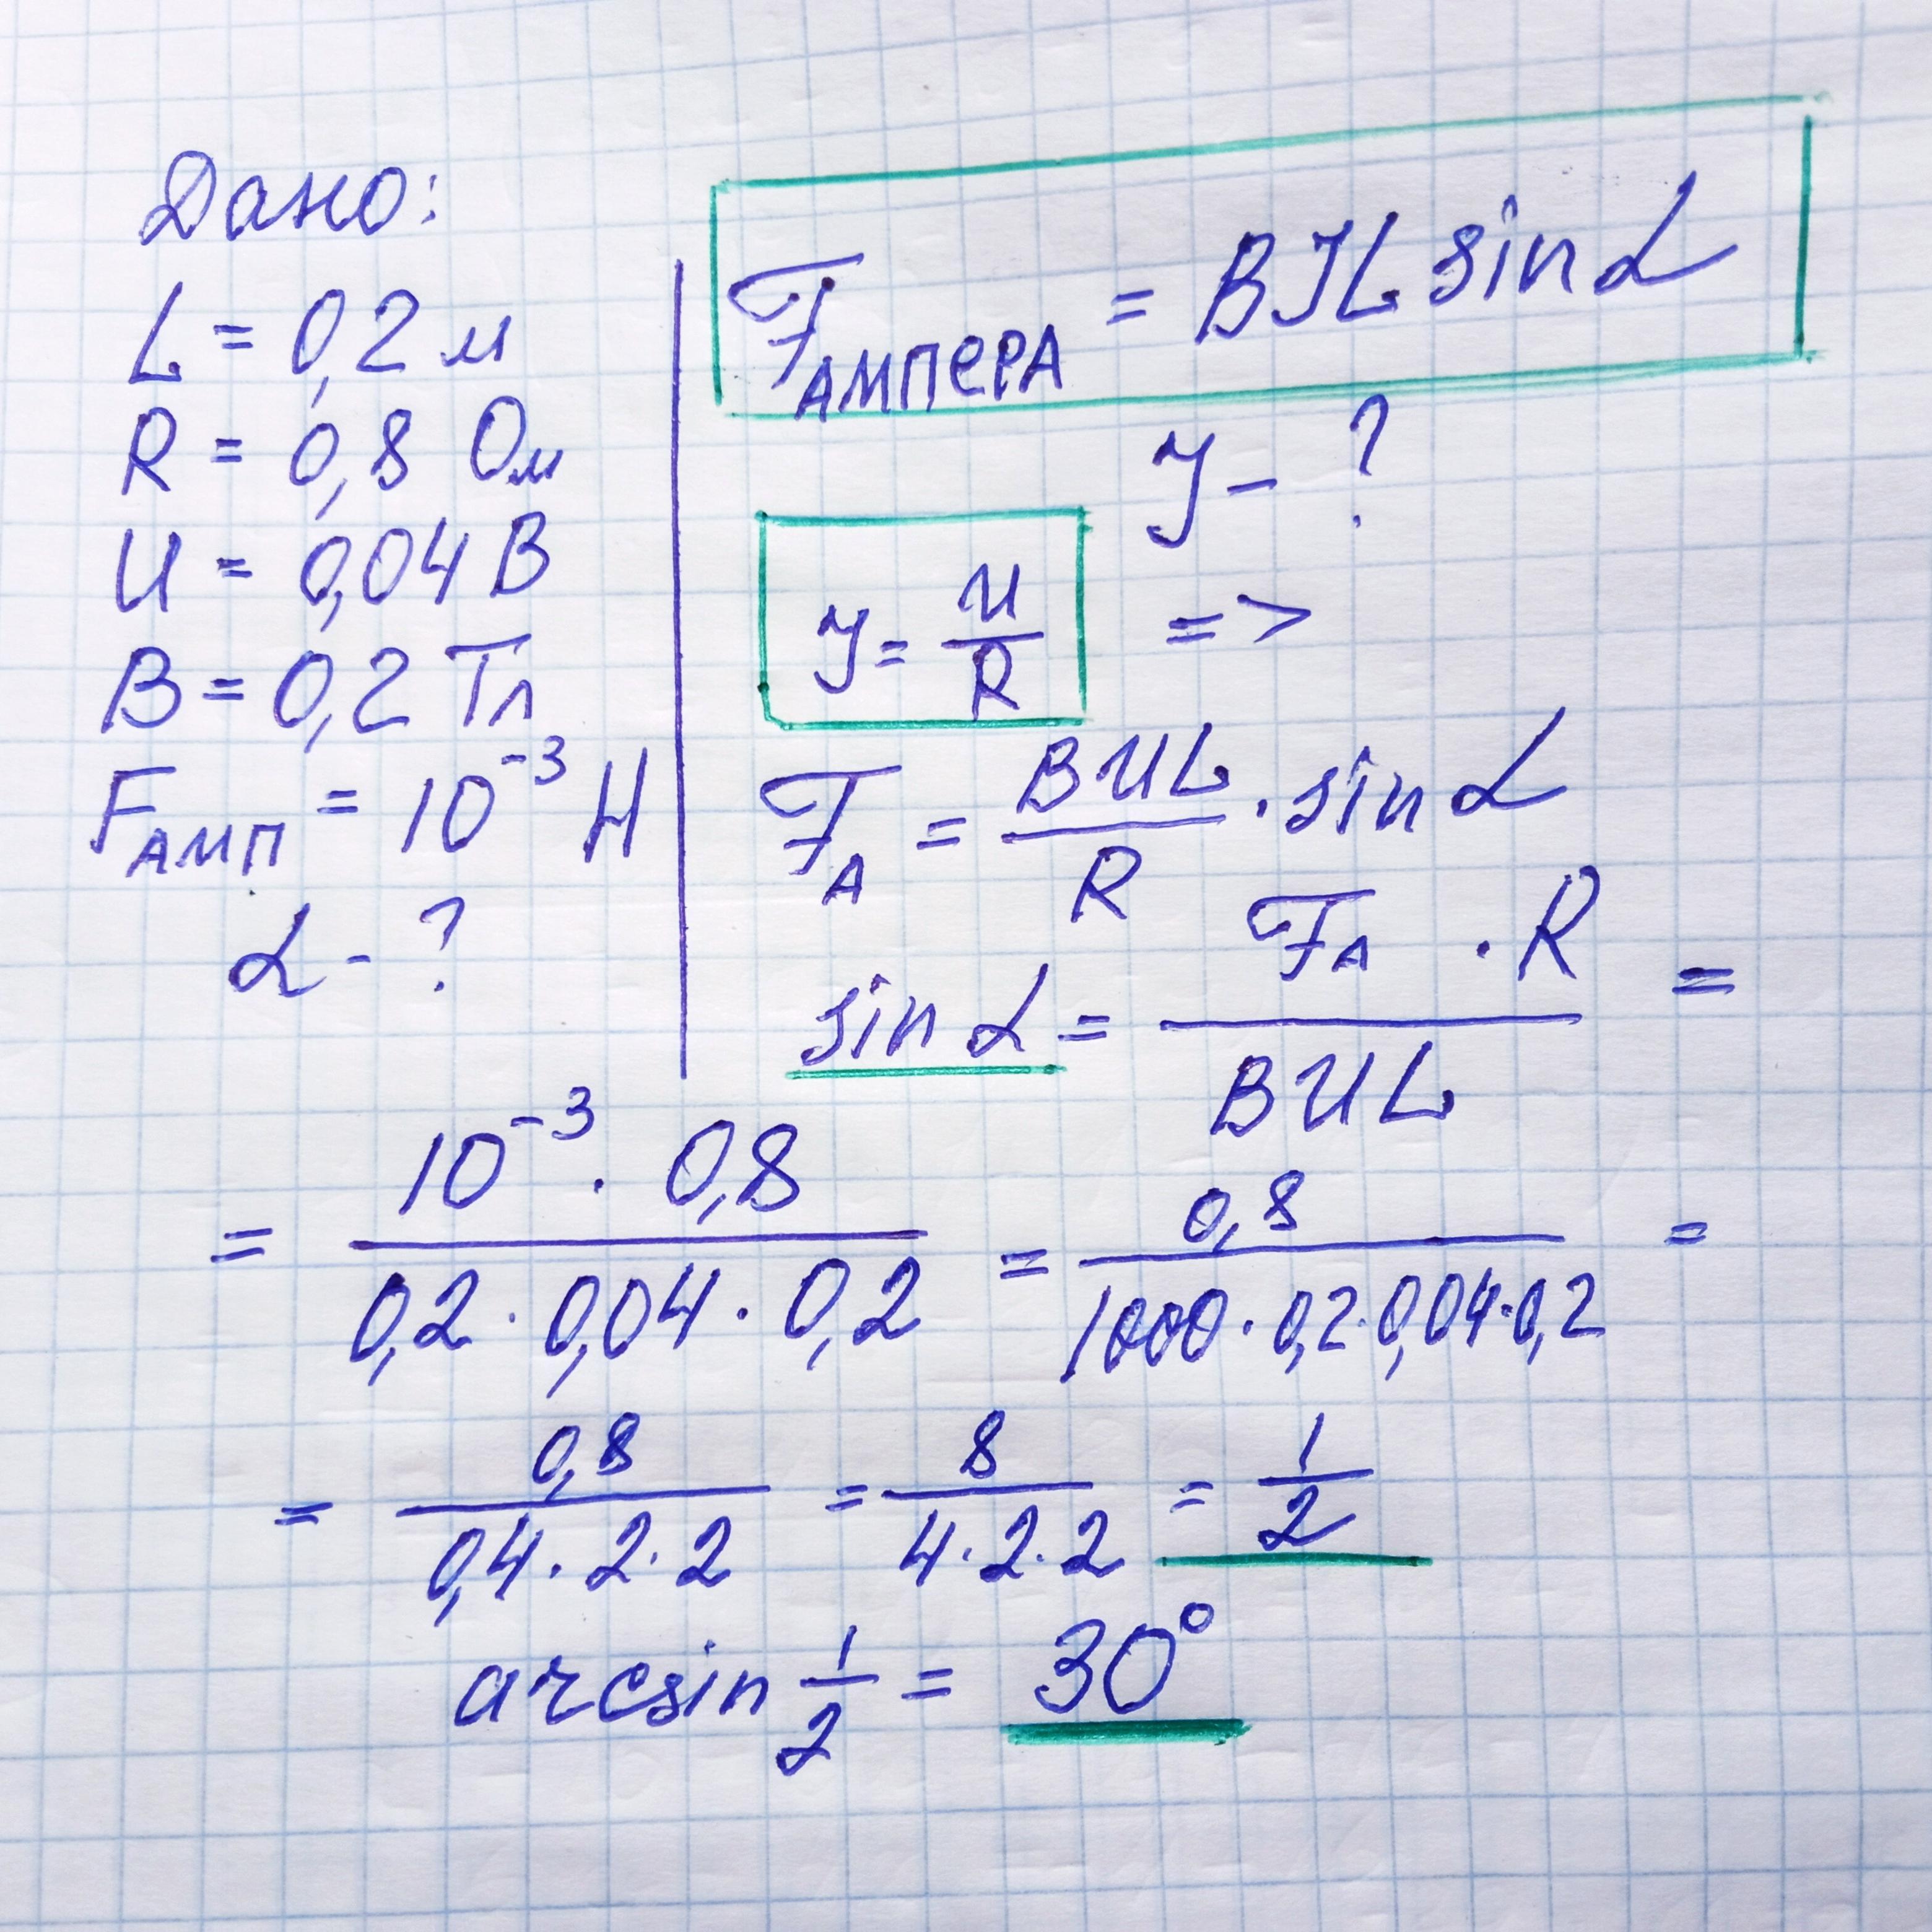 Дано:
L = 0,2 м
R = 0,8 Ом
U = 0,04 В
B = 0,2 Тл
Fамп = 10⁻³ Н
α - ?
Fампера = BIL sin α
I - ?
I = U/R =>
FА = BUL/R · sin α
sin α = FА · R / BUL =
= 10⁻³ · 0,8 / 0,2 · 0,04 · 0,2 = 0,8 / 1000 · 0,2 · 0,04 · 0,2 =
= 0,8 / 0,4 · 2 · 2 = 8 / 4 · 2 · 2 = 1/2
arcsin 1/2 = 30°